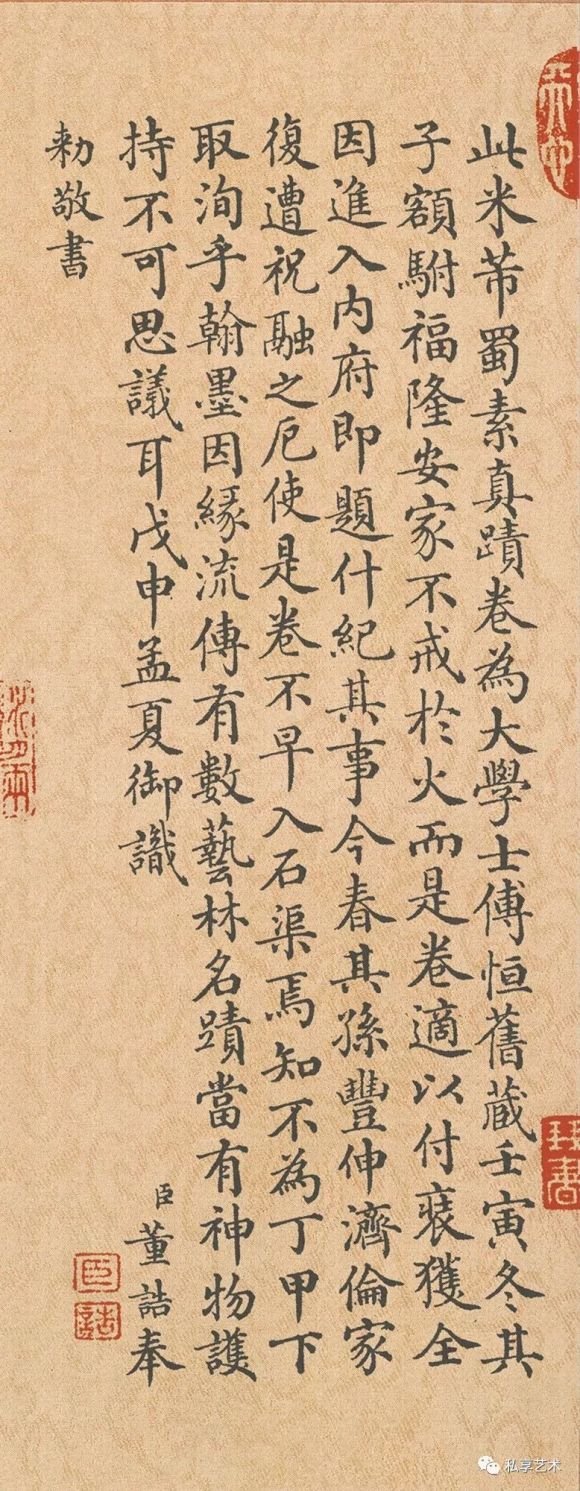 此米芾蜀素真蹟卷為大學士傅恒舊蔵壬寅冬其
子額駙福隆安家不戒於火而是卷適以付裝獲全
因進入內府即題什紀其事今春其孫豐伸濟倫家
復遭祝融之厄使是卷不早入石渠焉知不為丁甲下
取洵乎翰墨因緣流傳有數藝林名蹟當有神物護
持不可思議耳戊申孟夏御識
臣董誥奉
勑敬書
臣
誥
私享艺术